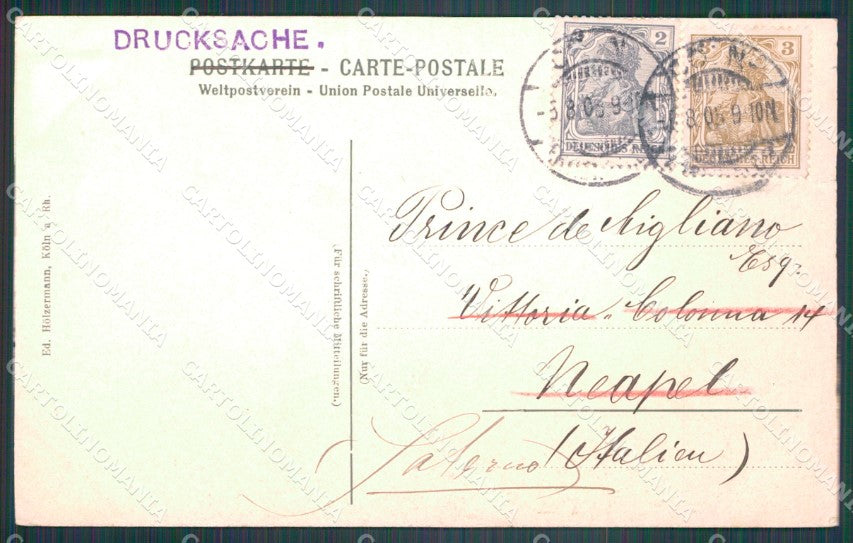 DRUCKSACHE.
POSTKARTE - CARTE-POSTALE
Weltpostverein - Union Postale Universelle.
2
DEUTSCHES REICH
3
DEUTSCHES REICH
8 05 9-10N
8 05 9-10N
Ed. Hölzermann, Köln a/Rh.
(Für schriftliche Mitteilungen.)
(Nur für die Adresse.)
Prince de Aigliano
Esq.
Vittoria-Colonna 14
Neapel
(Italien)
Salerno
CARTOLINOMANIA